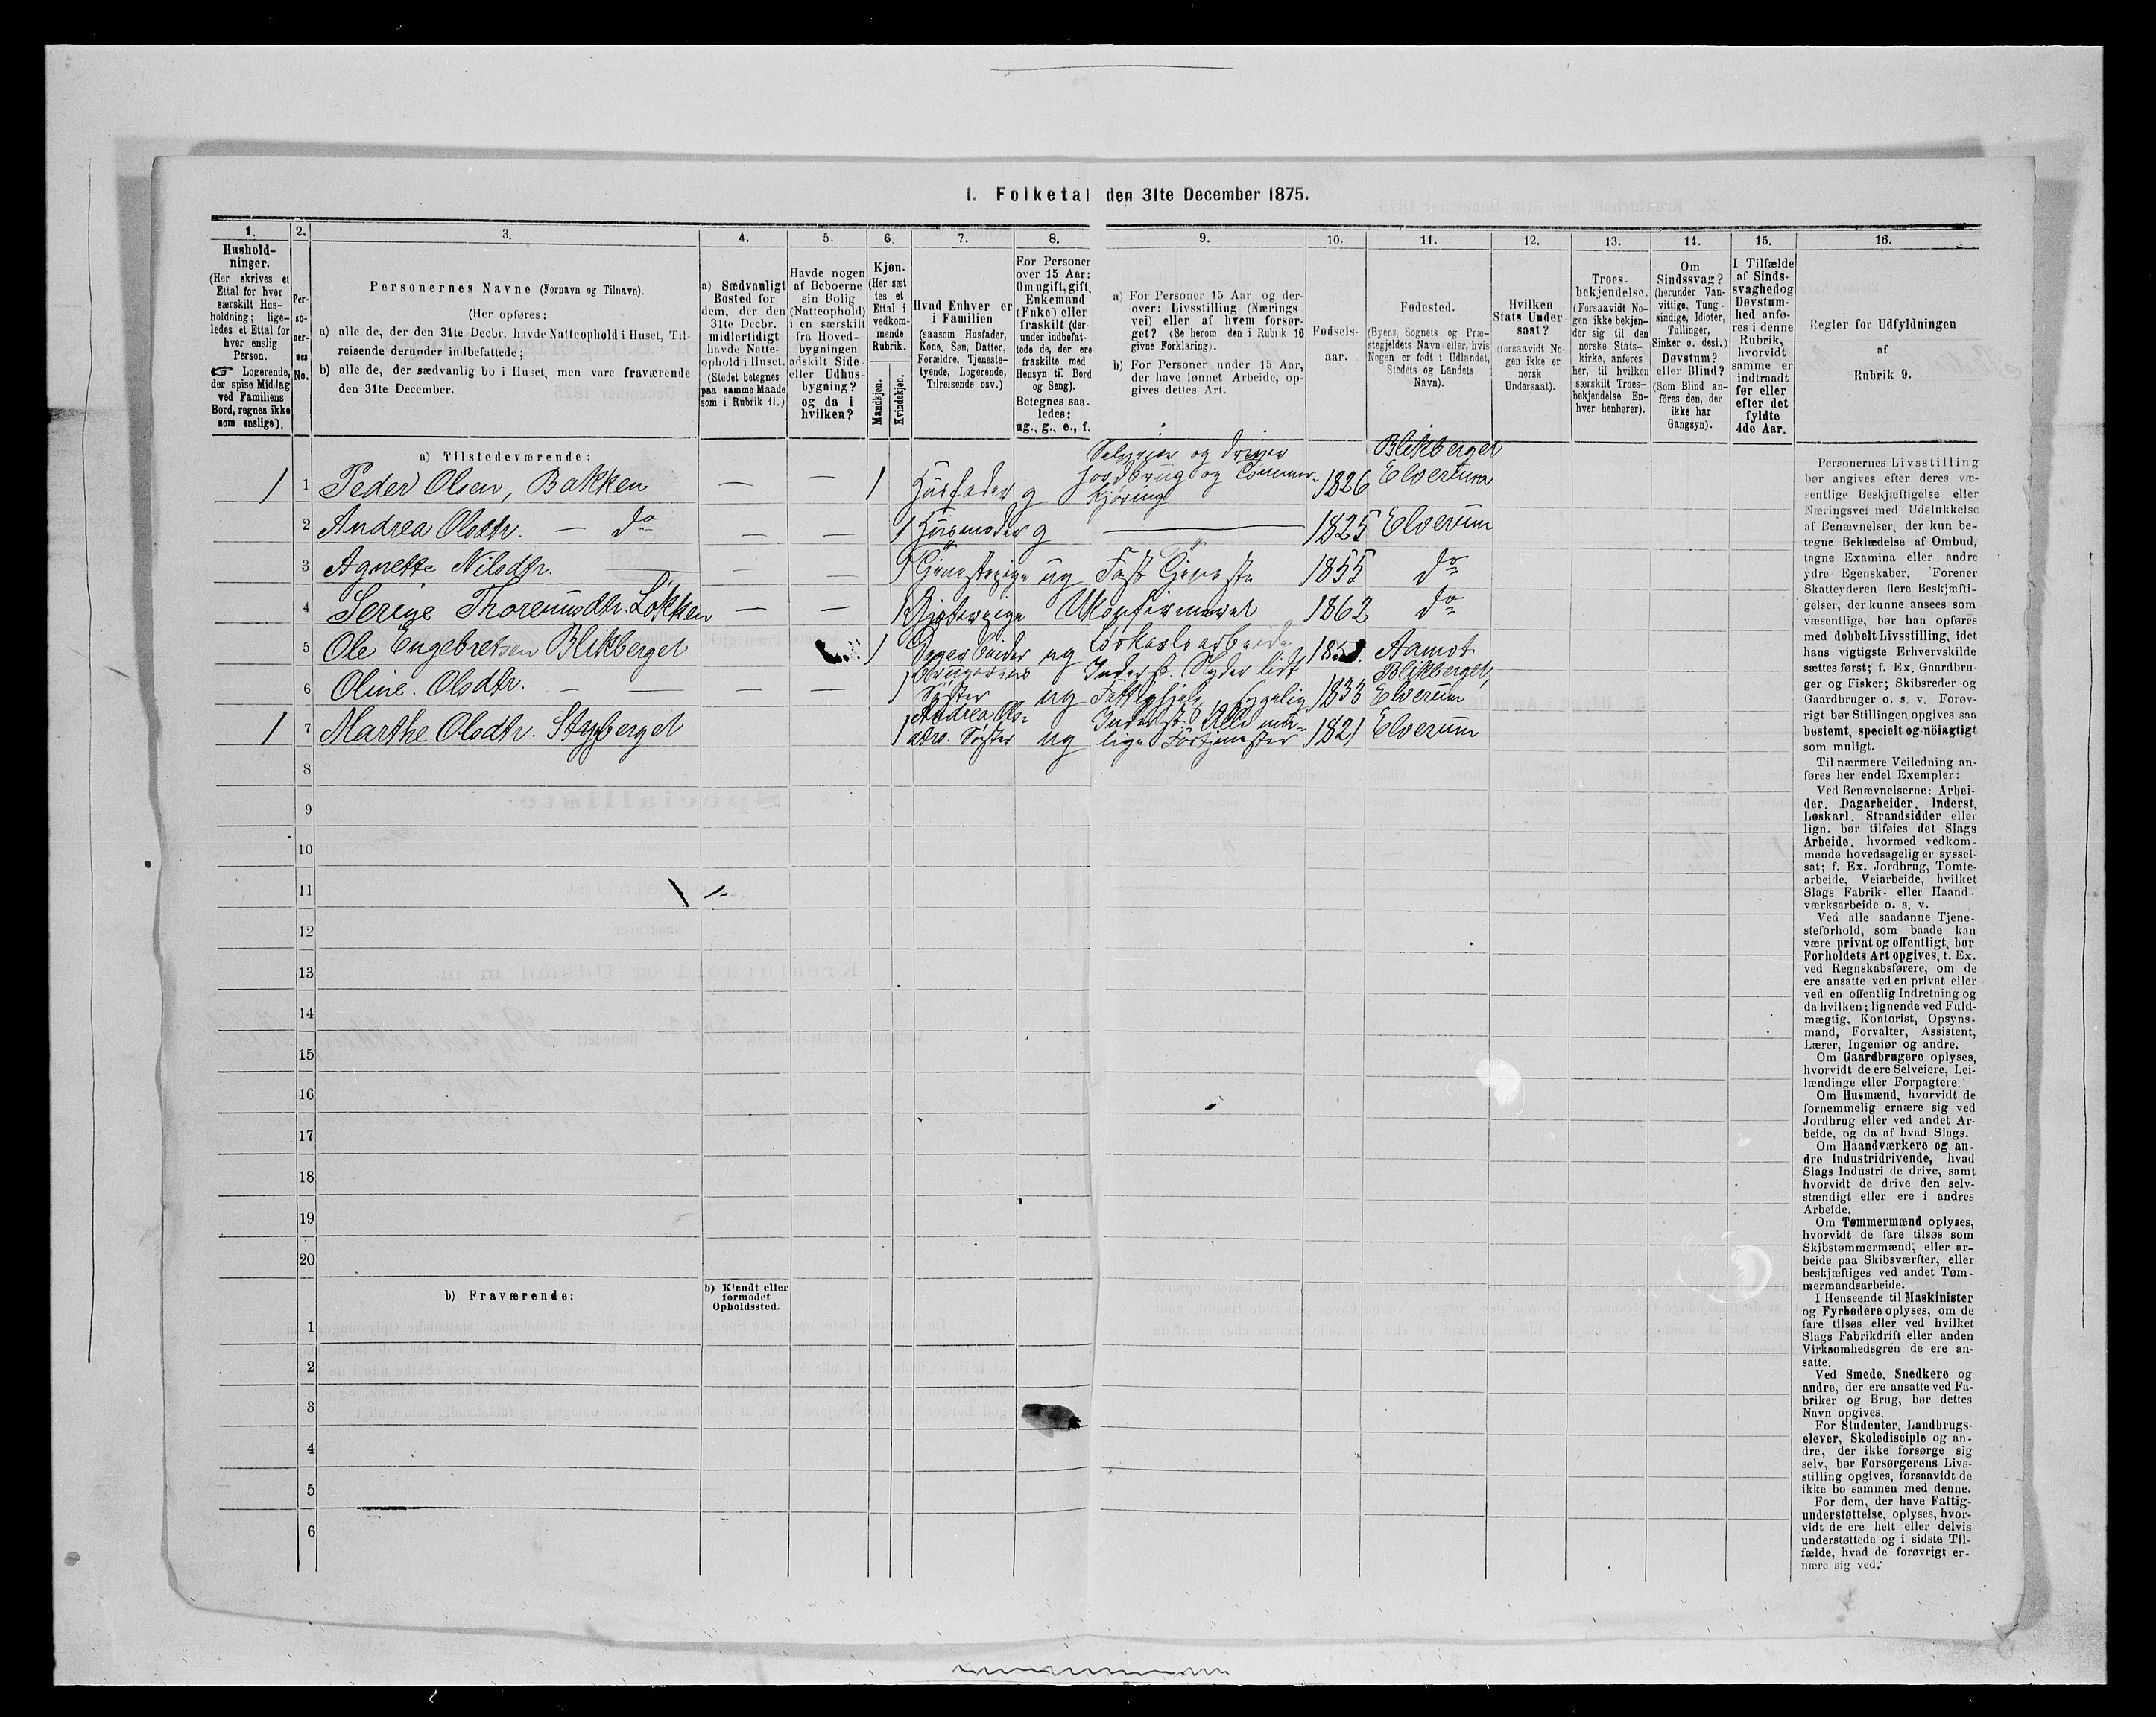 1. Folketal den 31te December 1875.
1.
Hushold-
ninger.
(Her skrives et
Ettal for hver
særskilt Hus-
holdning; lige-
ledes et Ettal for
hver enslig
Person.
☞ Logerende,
der spise Middag
ved Familiens
Bord, regnes ikke
som enslige).
2.
Per-
so-
ner-
nes
No.
3.
Personernes Navne (Fornavn og Tilnavn).
(Her opføres:
a) alle de, der den 31te Decbr. havde Natteophold i Huset, Til-
reisende derunder indbefattede;
b) alle de, der sædvanlig bo i Huset, men vare fraværende
den 31te December.
4.
a) Sædvanligt
Bosted for
dem, der den
31te Decbr.
midlertidigt
havde Natte-
ophold i Huset.
(Stedet betegnes
paa samme Maade
som i Rubrik 11.)
5.
Havde nogen
af Beboerne
sin Bolig
(Natteophold)
i en særskilt
fra Hoved-
bygningen
adskilt Side-
eller Udhus-
bygning?
og da i
hvilken?
6.
Kjøn.
(Her sæt
tes et
Ettal i
vedkom-
mende
Rubrik.
Mandkjøn.
Kvindekjøn.
7.
Hvad Enhver er
i Familien
(saasom Husfader,
Kone, Søn, Datter,
Forældre, Tjeneste-
tyende, Logerende,
Tilreisende osv.)
8.
For Personer
over 15 Aar:
Om ugift, gift,
Enkemand
(Enke) eller
fraskilt (der-
under indbefat-
tede de, der ere
fraskilte med
Hensyn til Bord
og Seng).
Betegnes saa-
ledes:
ug., g., e., f.
9.
a) For Personer 15 Aar og der-
over: Livsstilling (Nærings
vei) eller af hvem forsør-
get? (Se herom den i Rubrik 16
givne Forklaring).
b) For Personer under 15 Aar,
der have lønnet Arbeide, op-
gives dettes Art.
10.
Fødsels-
aar.
11.
Fødested.
(Byens, Sognets og Præ-
stegjeldets Navn eller, hvis
Nogen er født i Udlandet,
Stedets og Landets
Navn).
12.
Hvilken
Stats Under
saat?
(forsaavidt No-
gen ikke er
norsk
Undersaat).
13.
Troes-
bekjendelse.
(Forsaavidt No-
gen ikke bekjen-
der sig til den
norske Stats-
kirke, anføres
her, til hvilken
særskilt Troes-
bekjendelse En-
hver henhører).
14.
Om
Sindssvag?
(herunder Van-
vittige, Tung-
sindige, Idioter,
Tullinger,
Sinker o. desl.)
Døvstum?
eller Blind?
(Som Blind an-
föres den, der
ikke har
Gangsyn).
15.
I Tilfælde
af Sinds-
svaghed og
Døvstum-
hed anfø-
res i denne
Rubrik,
hvorvidt
samme er
indtraadt
før eller
efter det
fyldte
4de Aar.
16.
Regler for Udfyldningen
af
Rubrik 9.
a) Tilstedeværende:
1 1 Peder Olsen, Bakken — — 1 Husfader g Selveier og driver Jordbrug og Tømmerkjøring 1826 Blikberget Elverum
2 Andrea Olsdtr. — do — — 1 Husmoder g — 1825 Elverum
3 Agnethe Nilsdtr. — — — 1 Tjenestepige ug Fast Tjeneste 1855 do
4 Serige Thoremsdtr. Løkken — — 1 Ukonfirmeret 1862 do
5 Ole Engebretsen Blikberget 1 ug Løskarlsarbeide Aamot
6 Oline Olsdtr. — — — — 1 Søster ug Inderst. Syder lidt 1833 Blikberget, Elverum
1 7 Marthe Olsdtr. Stybberget 1 Andrea Ols- dtrs. Søster ug Inderst 1821 Elverum
8
9
10
11
12
13
14
15
16
17
18
19
20
b) Fraværende:
b) Kjendt eller
formodet
Opholdssted.
1
2
3
4
5
6
Personernes Livsstilling
bør angives efter deres væ-
sentlige Beskjæftigelse eller
Næringsvei med Udelukkelse
af Benævnelser, der kun be-
tegne Beklædelse af Ombud,
tagne Examina eller andre
ydre Egenskaber. Forener
Skatteyderen flere Beskjæfti-
gelser, der kunne ansees som
væsentlige, bør han opføres
med dobbelt Livsstilling, idet
hans vigtigste Erhvervskilde
sættes først; f. Ex. Gaardbru-
ger og Fisker; Skibsreder og
Gaardbruger o. s. v. Forøv-
rigt bør Stillingen opgives saa
bestemt, specielt og nöiagtigt
som muligt.
Til nærmere Veiledning an-
føres her endel Exempler:
Ved Benævnelserne: Arbei-
der, Dagarbeider, Inderst,
Løskarl, Strandsidder eller
lign. bør tilføies det Slags
Arbeide, hvormed vedkom-
mende hovedsagelig er syssel-
sat; f. Ex. Jordbrug, Tomte-
arbeide, Veiarbeide, hvilket
Slags Fabrik- eller Haand-
værksarbeide o. s. v.
Ved alle saadanne Tjene-
steforhold, som baade kan
være privat og offentligt, bør
Forholdets Art opgives, t. Ex.
ved Regnskabsførere, om de
ere ansatte ved en privat eller
ved en offentlig Indretning og
da hvilken; lignende ved Fuld-
mægtig, Kontorist, Opsyns-
mand, Forvalter, Assistent,
Lærer, Ingeniør og andre.
Om Gaardbrugere oplyses,
hvorvidt de ere Selveiere, Lei-
lændinge eller Forpagtere.
Om Husmænd, hvorvidt de
fornemmelig ernære sig ved
Jordbrug eller ved andet Ar-
beide, og da af hvad Slags.
Om Haandværkere og an-
dre Industridrivende, hvad
Slags Industri de drive, samt
hvorvidt de drive den selv-
stændigt eller ere i andres
Arbeide.
Om Tømmermænd oplyses,
hvorvidt de fare tilsøs som
Skibstømmermænd, eller ar-
beide paa Skibsværfter, eller
beskjæftiges ved andet Tøm-
mermandsarbeide.
I Henseende til Maskinister
og Fyrbødere oplyses, om de
fare tilsøs eller ved hvilket
Slags Fabrikdrift eller anden
Virksomhedsgren de ere an-
satte.
Ved Smede, Snedkere og
andre, der ere ansatte ved Fa-
briker og Brug, bør dettes
Navn opgives.
For Studenter, Landbrugs-
elever, Skoledisciple og an-
dre, der ikke forsørge sig
selv, bør Forsørgerens Livs-
stilling opgives, forsaavidt de
ikke bo sammen med denne.
For dem, der have Fattig-
understøttelse, oplyses, hvor-
vidt de ere helt eller delvis
understøttede og i sidste Til-
fælde, hvad de forøvrigt er-
nære sig ved.